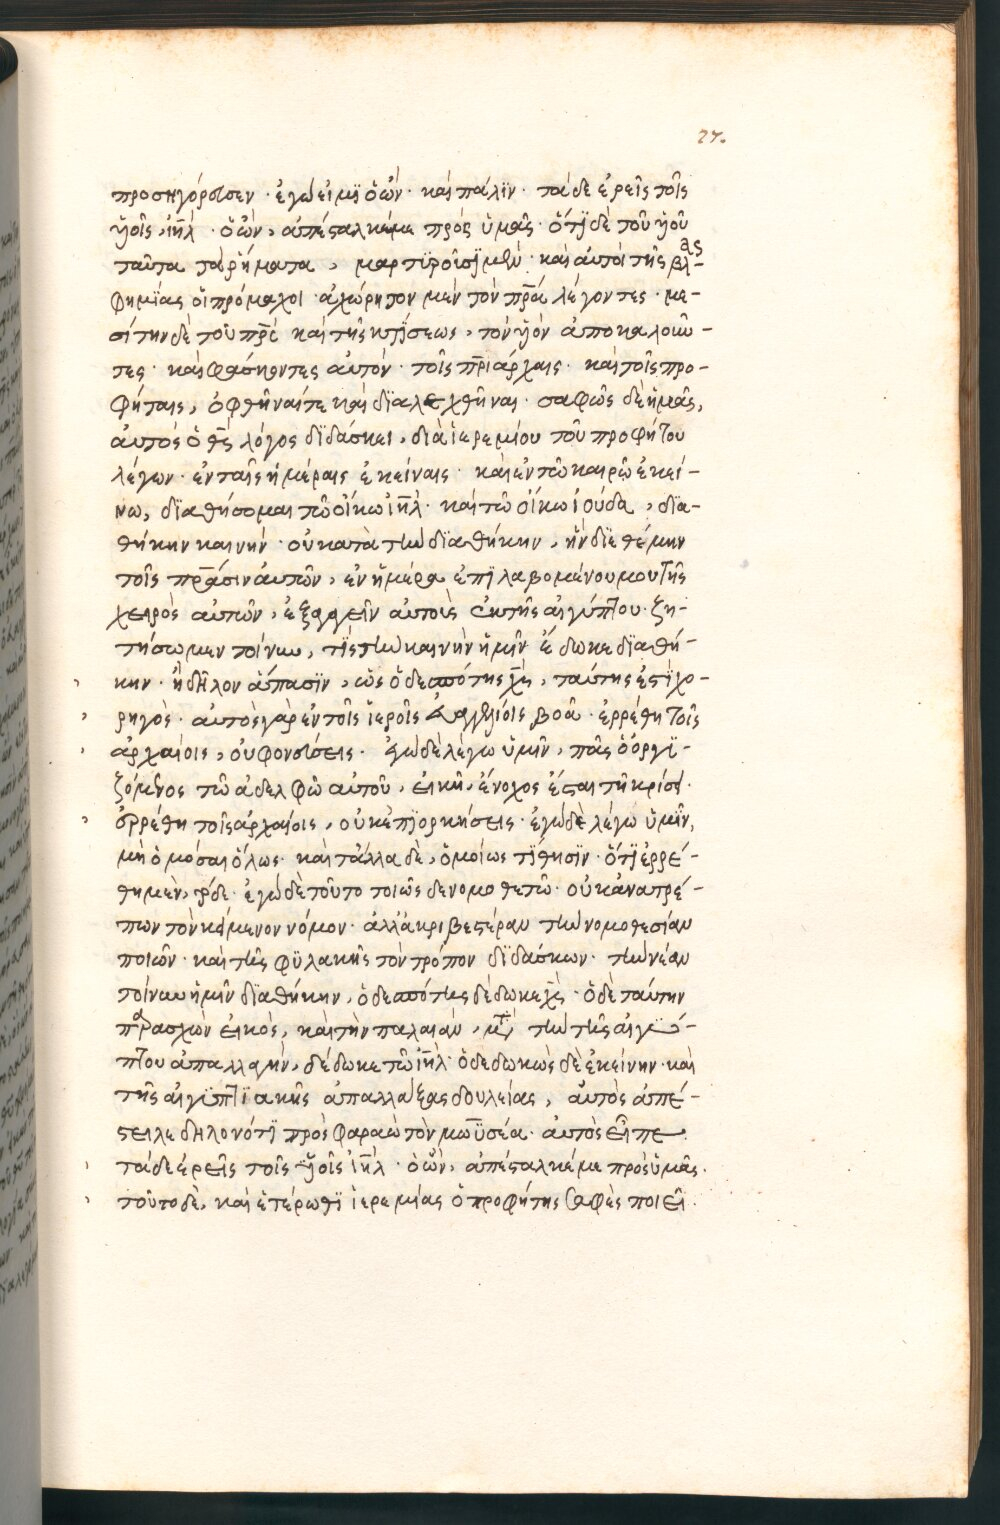 27.
προσηγόρευσεν · ἐγώ εἰμϊ ὁ ὤν · καὶ πάλϊν · τάδε ἐρεῖς τοῖς
ὑϊοῖς ἰη̅λ · ὁ ὢν, ἀπέσταλκέ με πρὸς ὑμᾶς · ὅτϊ δὲ τοῦ ὑϊοῦ
ταῦτα τὰ ῥήματα, μαρτυροῦσϊ μὲν καὶ αὐτοὶ τῆς βλασ-
φημίας οἱ πρόμαχοι ἀχώρητον μὲν τὸν πρ̅α λέγοντες · με-
σίτην δὲ τοῦ πρ̅ς καὶ τῆς κτίσεως, τὸν ὑϊὸν ἀποκαλοῦν-
τες · καὶ φάσκοντες αὐτὸν · τοῖς πρ̅ιάρχαις · καὶ τοῖς προ-
φήταις, ὀφθῆναί τε καὶ δϊαλεχθῆναι · σαφῶς δὲ ἡμᾶς,
αὐτὸς ὁ θ̅ς λόγος δϊδάσκει, διὰ ἱερεμίου τοῦ προφήτου
λέγων · ἐν ταῖς ἡμέραις ἐκείναις · καὶ ἐν τῶ καιρῶ ἐκεί-
νω, δϊαθήσομαι τῶ οἴκω ἰη̅λ · καὶ τῶ οἴκω ἰούδα, δϊα-
θήκην καινήν · οὐ κατὰ τὴν δϊαθήκην, ἣν δϊεθέμην
τοῖς πρ̅άσιν αὐτῶν, ἐν ἡμέρα ἐπϊλαβομένου μου τῆς
χειρὸς αὐτῶν, ἐξαγαγεῖν αὐτοὺς ἐκ τῆς αἰγύπτου · ζη-
τήσωμεν τοίνυν, τίς τὴν καινὴν ἡμῖν ἔδωκε δϊαθή-
κην · ἢ δῆλον ἅπασϊν, ὡς ὁ δεσπότης χ̅ς, ταύτης ἐστϊ χο-
ρηγὸς · αὐτὸς γὰρ ἐν τοῖς ἱεροῖς εὐαγγελίοις βοᾶ · ἐρρέθη τοῖς
ἀρχαίοις, οὐ φονεύσεις · ἐγὼ δὲ λέγω ὑμῖν, πᾶς ὁ ὀργϊ-
ζόμενος τῶ ἀδελφῶ αὐτοῦ, εἰκῆ, ἔνοχος ἔσται τῆ κρίσει ·
ἐρρέθη τοῖς ἀρχαίοις, οὐκ ἐπϊορκήσεις · ἐγὼ δὲ λέγω ὑμῖν,
μὴ ὀμόσαι ὅλως · καὶ τἄλλα δὲ, ὁμοίως τϊθησϊν · ὅτϊ ἐρρέ-
θη μὲν, τόδε · ἐγὼ δὲ τοῦτο τοιῶσδε νομοθετῶ · οὐκ ἀνατρέ-
πων τὸν κείμενον νόμον · ἀλλ᾽ ἀκριβεστέραν τὴν νομοθεσίαν
ποιῶν · καὶ τῆς φϋλακῆς τὸν τρόπον δϊδάσκων · τὴν νέαν
τοίνυν ἡμῖν δϊαθήκην, ὁ δεσπότης δέδωκε χ̅ς · ὁ δὲ ταύτην
παρασχὼν εἰκὸς, καὶ τὴν παλαιὰν, μετὰ τὴν τῆς αἰγύ-
πτου ἀπαλλαγὴν, δέδωκε τῶ ἰη̅λ · ὁ δεδωκὼς δὲ ἐκείνην · καὶ
τῆς αἰγϋπτϊακῆς ἀπαλλάξας δουλείας, αὐτὸς ἀπέ-
στειλε δηλονότϊ πρὸς φαραὼ τὸν μωϋσέα · αὐτὸς εἶπε
τάδε ἐρεῖς τοῖς ὑϊοῖς ἰη̅λ · ὁ ὢν, ἀπέσταλκέ με πρὸς ὑμᾶς.
τοῦτο δὲ, καὶ ἑτέρωθϊ ἱερεμίας ὁ προφήτης σαφὲς ποιεῖ.